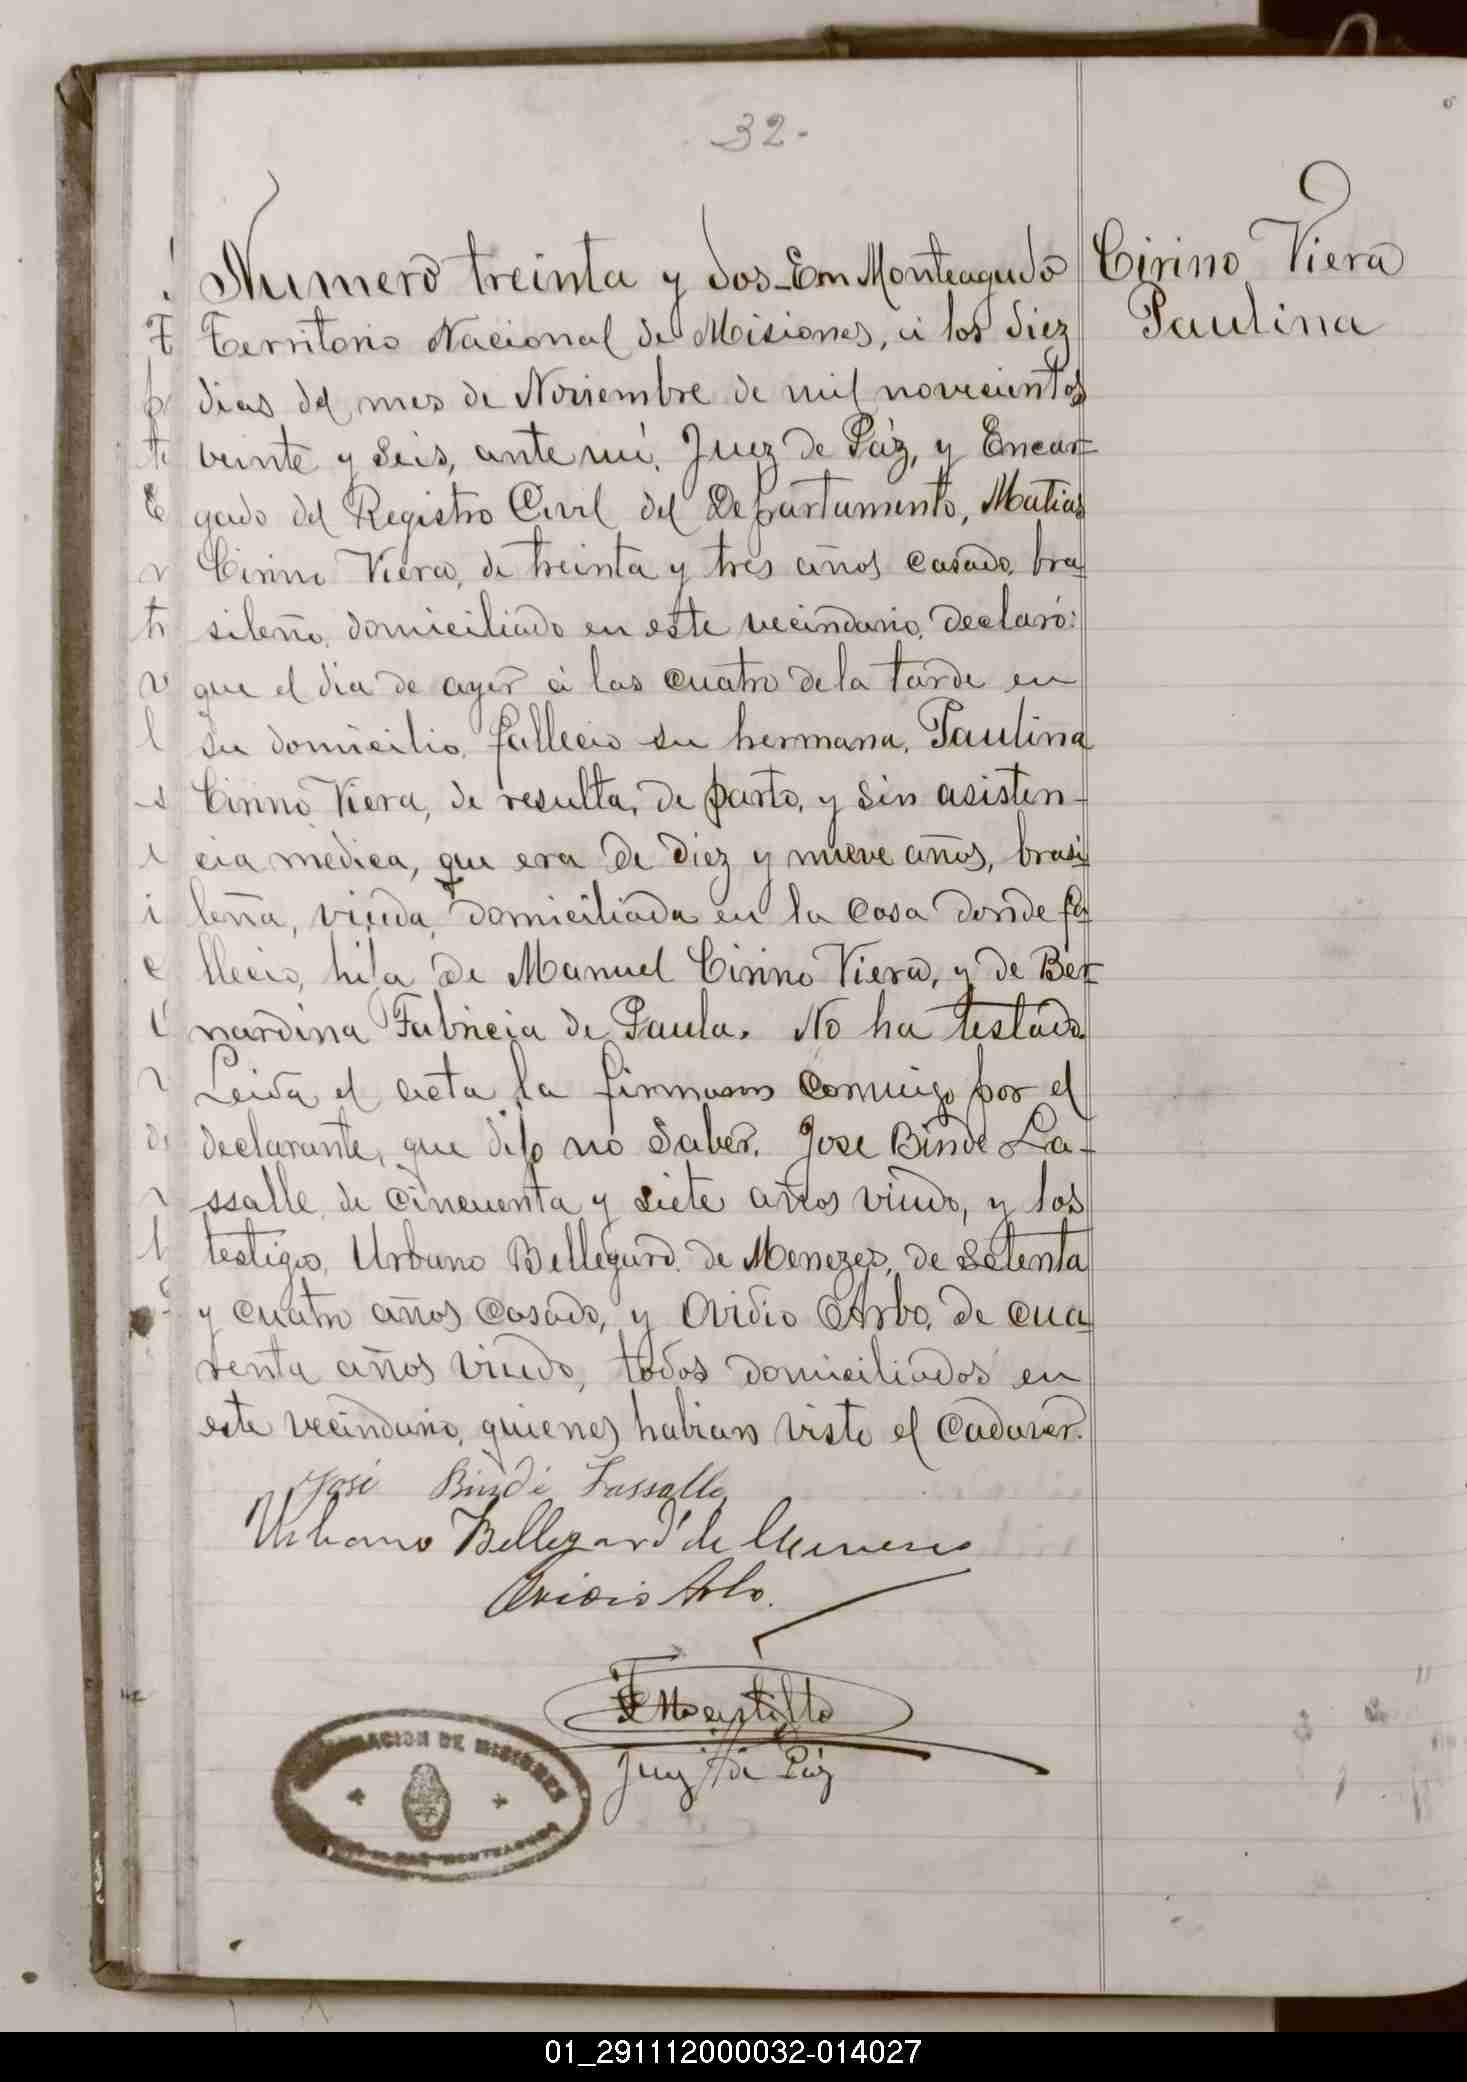 32-
Cirino Viera
Paulina
Numero treinta y dos_En Monteagudo
Territorio Nacional de Misiones, á los diez
dias del mes de Noviembre de mil novecientos
veinte y seis, ante mi. Juez de Páz, y Encar-
gado del Registro Civil del Departamento, Matias
Cirino Viera, de treinta y tres años casado, bra-
sileño, domiciliado en este vecindario, declaró:
que el dia de ayer á las cuatro de la tarde en
su domicilio, fallecio su hermana, Paulina
Cirino Viera, de resulta, de parto, y sin asisten-
cia medica, que era de diez y nueve años, brasi-
leña, viuda, domiciliada en la casa donde fa-
llecio, hija de Manuel Cirino Viera, y de Ber-
nardina Fabricia de Paula. No ha testado
Leida el acta la firmaron conmigo por el
declarante, que dijo no saber. Jose Binde La-
ssalle, de cincuenta y siete años viudo, y los
testigos, Urbano Bellegard de Menezes, de setenta
y cuatro años casado, y Ovidio Arbo, de cua-
renta años viudo, todos domiciliados en
este vecindario, quienes habian visto el cadaver.
José Bindé Lassalle
Urbano Bellegard de Meneses
Ovidio Arbo.
Juez de Páz
GOBERNACION DE MISIONES
MONTEAGUDO
01_291112000032-014027